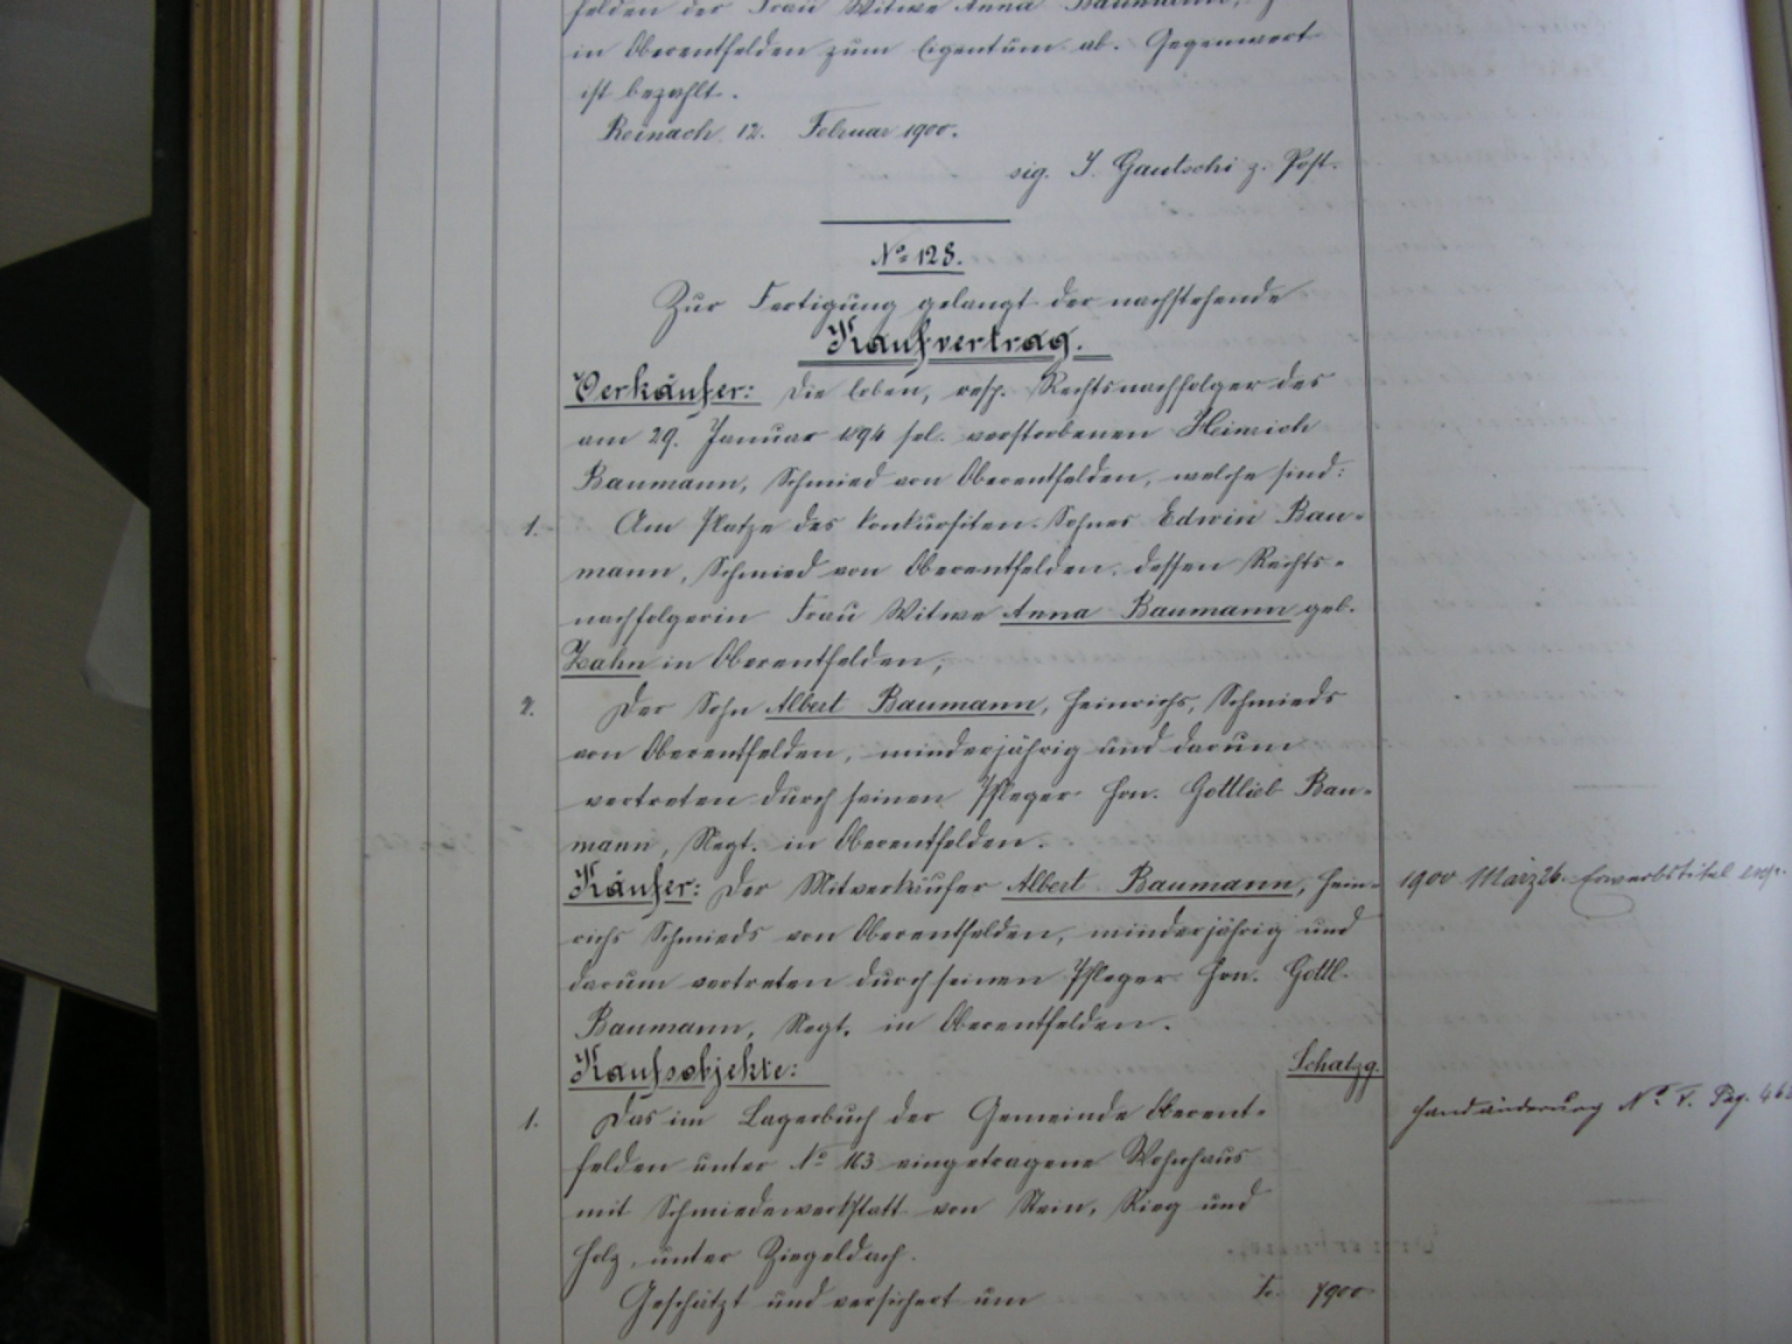 felden der Frau Witwe Anna Baumann,
in Oberentfelden zum Eigentum ab. Gegenwert
ist bezahlt.
Reinach, 12. Februar 1900.
sig. J. Gautschi z. Post.
No 128.
Zur Fertigung gelangt der nachstehende
Kaufvertrag.
Verkäufer: Die Erben, resp. Rechtsnachfolger des
am 29. Januar 1894 sel. verstorbenen Heinrich
Baumann, Schmied von Oberentfelden, welche sind:
1. Am Platze des konkursiten Sohnes Edwin Bau-
mann, Schmied von Oberentfelden, dessen Rechts-
nachfolgerin Frau Witwe Anna Baumann geb.
Zahn in Oberentfelden;
2. Der Sohn Albert Baumann, Heinrichs, Schmieds
von Oberentfelden, minderjährig und darum
vertreten durch seinen Pfleger Hrn. Gottlieb Bau-
mann, Negt. in Oberentfelden.
Käufer: Der Mitverkäufer Albert Baumann, Hein-
richs Schmieds von Oberentfelden, minderjährig und
darum vertreten durch seinen Pfleger Hrn. Gottl.
Baumann, Negt. in Oberentfelden.
1900 März 26. Erwerbstitel exp.
Kaufsobjekte: Schatzg.
1. Das im Lagerbuch der Gemeinde Oberent-
felden unter No 163 eingetragene Wohnhaus
mit Schmiedewerkstatt von Stein, Rieg und
Holz, unter Ziegeldach.
Geschätzt und versichert um Fr. 7900
Handänderung No Pag.